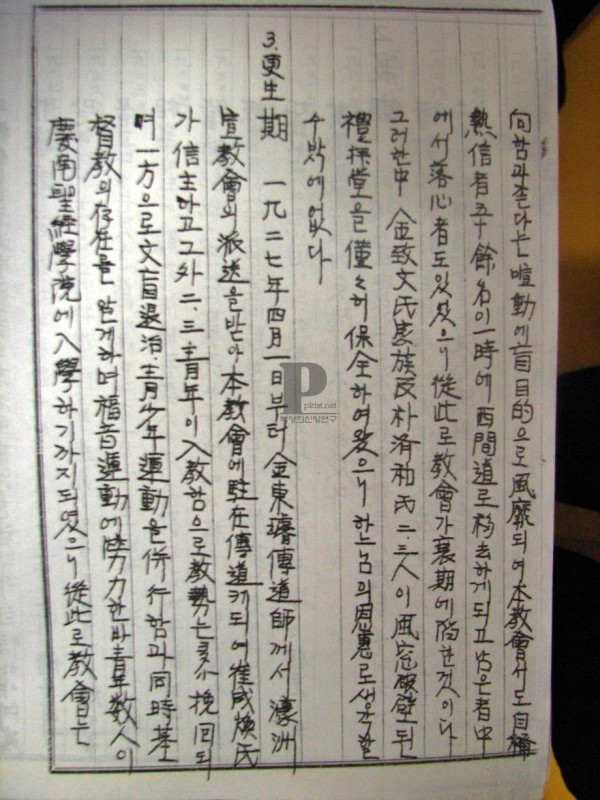 向함과 같다는 喧動에 盲目的으로 風靡되여 本敎會서도 自稱
熱信者 五十餘名이 一時에 西間道로 移去하게 되고 남은 者 中
에서 落心者도 있섯으니 從此로 敎會가 衰期에 陷한 것이다
그러한 中 金致文氏 家族 及 朴済和氏 二.三人이 風窓破壁 된
禮拜堂을 僅々히 保全하여 왔으니 하느님의 恩惠로 생각할
수밖에 없다
3. 更生期 一九二七年 四月 一日부터 金東璿 傳道師께서 濠洲
宣敎會의 派送을 받아 本敎會에 駐在傳道케 되여 崔成煥氏
가 信主하고 그外 二.三 靑年이 入敎함으로 敎勢는 多小 挽回되
며 一方으로 文盲退治. 靑少年運動을 併行함과 同時 基
督敎의 存在를 알게하며 福音運動에 努力한바 靑年 數人이
慶南聖經學院에 入學하기까지 되엿으니 從此로 敎會는
pkist.net